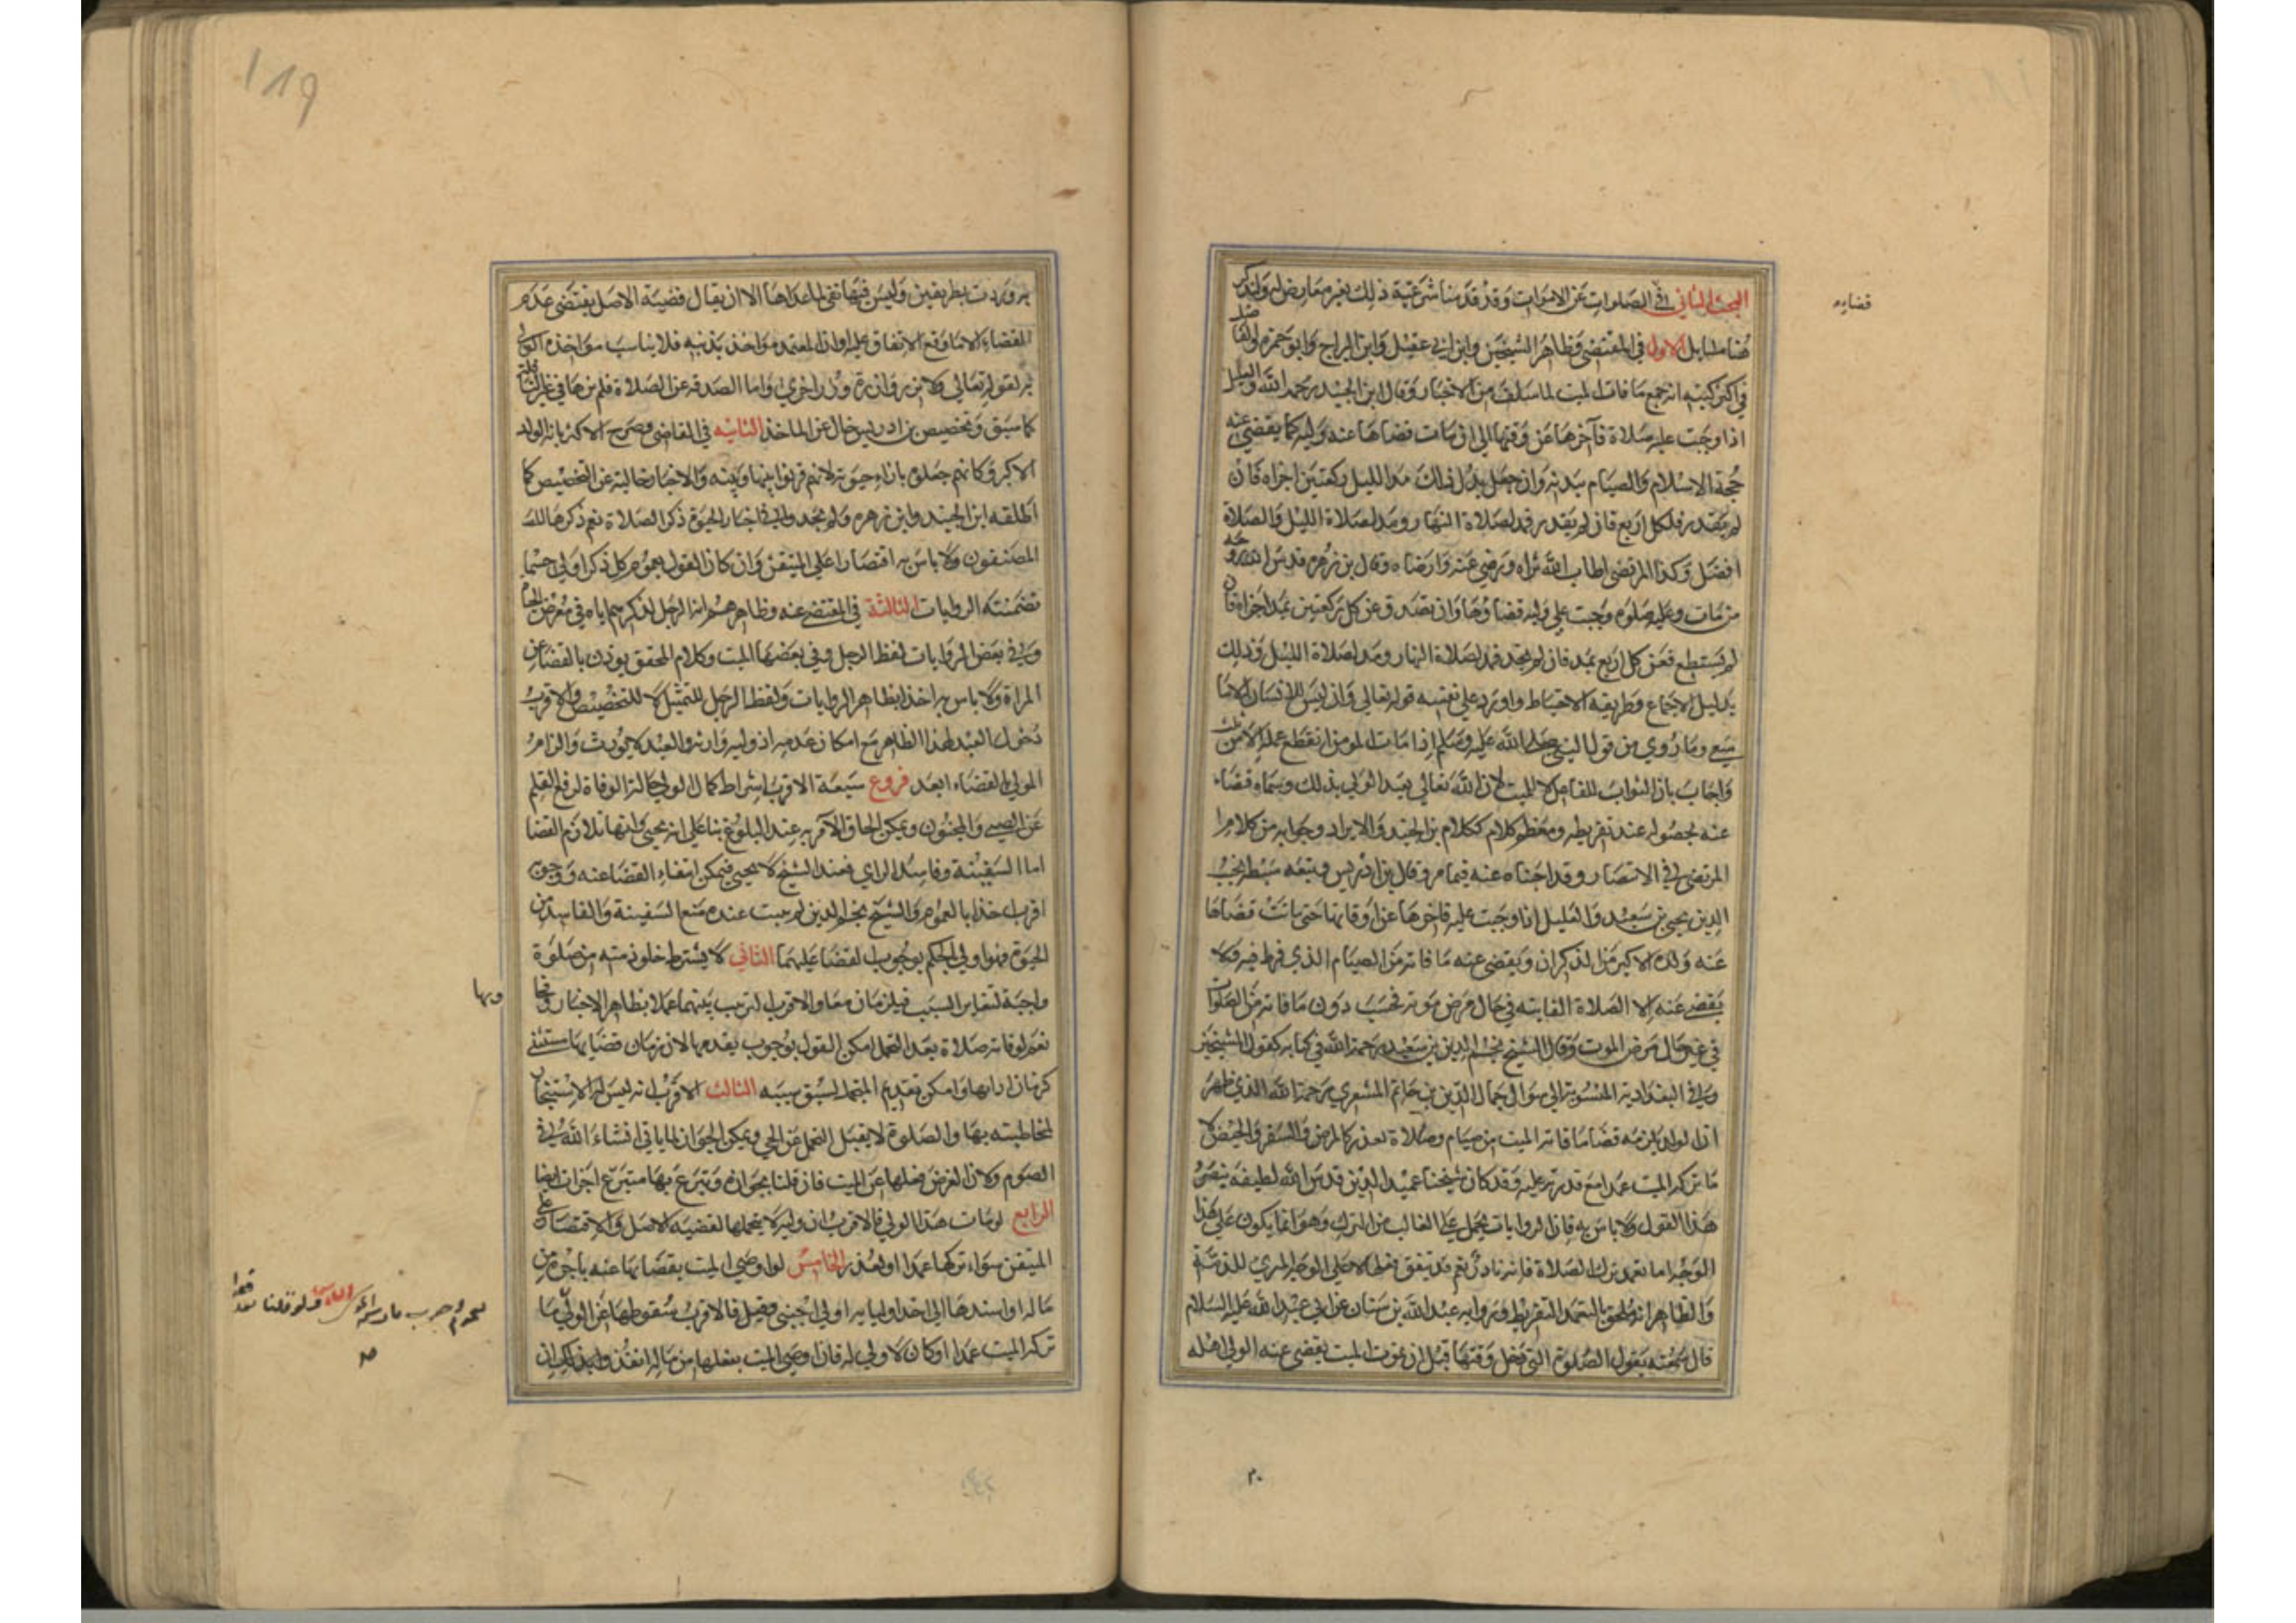 البحث الثاني في الصلوات عن الاموات وقد قدمنا شرعية ذلك بغير معارض له ولنذكر
هنا مسايل الاول في المقتضي وظاهر الشيخين وابن ابي عقيل وابن البراج وابو حمزه والفاضل
في اكثر كتبه انه جميع ما فات الميت لما سلف من الاخبار وقال ابن الجنيد رحمه الله والعليل
اذا وجبت عليه صلاة فآخرها عن وقتها الى ان مات قضاها عنه وليه كما يقضي عنه
حجة الاسلام والصيام ببدنه وان جعل بدل ذلك مدا لليل ركعتين اجزاه فان
لم يقدر فلكل اربع فان لم يقدر فمد لصلاة النهار ومد لصلاة الليل والصلاة
افضل وكذا المرتضى اطاب الله ثراه ورضي عنه وارضاه وقال بن زهره قدس الله روحه
من مات وعليه صلوه وجبت على وليه قضاوها وان تصدق عن كل ركعتين بمد اجزاه فان
لم يستطع فعن كل اربع بمد فان لم يجد فمد لصلاة النهار ومد لصلاة الليل وذلك
بدليل الاجماع وطريقه الاحتياط واورد على نفسه قوله تعالى وان ليس للانسان الا ما
سعى وما روي من قول النبي صلى الله عليه وسلم اذا مات المومن انقطع عمله الا من ثلث
واجاب بان الثواب للفاعل لا للميت لان الله تعالى تعبد الولي بذلك وسماه قضاء
عنه لحصوله عند تفريطه ومعظم كلامه ككلام بن الجنيد والايراد وجوابه من كلام
المرتضى في الانتصار وقد اجبناه عنه فيما مر وقال بن ادريس وتبعه سبطه نجيب
الدين يحيى بن سعيد والعليل اذا وجبت عليه فاخرها عن اوقاتها حتى مات قضاها
عنه ولده الاكبر من الذكران ويقضي عنه ما فاته من الصيام الذي فرط فيه ولا
يقضي عنه الا الصلاة الفايته في حال مرض موته فحسب دون ما فاته من الصلوات
في غير حال مرض الموت وقال الشيخ نجم الدين بن سعيد رحمة الله في كتابه كقول الشيخين
وفي البغدادية المنسوبة الى سوال جمال الدين بن حاتم المشعري رحمة الله الذي ظهر
ان الولد يلزمه قضا ما فاته الميت من صيام وصلاة لعذر كالمرض والسفر والحيض لا
ما تركه الميت عمدا مع قدرته عليه وقد كان شيخنا عميد الدين قدس الله لطيفه ينصر
هذا القول ولا باس به فان الروايات تحمل على الغالب من الترك وهو انما يكون على هذا
الوجه اما تعمد ترك الصلاة فانه نادر نعم قد يتفق فعلها لا على الوجه المبري للذمة
والظاهر انه ملحق بالتعمد للتفريط ورواية عبد الله بن سنان عن ابي عبد الله عليه السلام
قال سمعته يقول الصلوة التي دخل وقتها قبل ان يموت الميت يقضي عنه اولى اهله
قضاءه
٢٠
119
به وردت بطريقين وليس فيها نفي لما عداها الا ان يقال قضية الاصل يقتضي عدم
القضاء الا ما وقع الاتفاق عليه او ان المتعمد مواخذ بذنبه فلا يناسب مواخذه الولي
به لقوله تعالى ولا تزر وازرة وزر اخرى واما الصدقه عن الصلاة فلم نرها في غير النافله
كما سبق وتخصيص بن ادريس خال عن الماخذ الثانيه في القاضي وصرح الاكثر بانه الولد
الاكبر وكانهم جعلوه بازاء حبوته لانهم قرنوا بينها وبينه والاخبار خالية عن التخصيص كما
اطلقه ابن الجنيد وابن زهره ولم نجد في اخبار الحبوة ذكر الصلاة نعم ذكرها
المصنفون ولا باس به اقتصارا على المتيقن وان كان القول بعموم كل ذكر اولى حسبما
تضمنته الروايات الثالثة في المقضي عنه وظاهرهم انه الرجل لذكرهم اياه في معرض الحبوة
وفي بعض الروايات لفظ الرجل وفي بعضها الميت وكلام المحقق يوذن بالقضا عن
المراة ولا باس به اخذا بظاهر الروايات ولفظ الرجل للتمثيل لا للتخصيص والاقرب
دخول العبد لهذا الظاهر مع امكان عدمه اذ وليه وارثه والعبد لا يورث والزام
المولى القضاء ابعد فروع سبعة الاقرب اشتراط كمال الولي حالة الوفاة لرفع القلم
عن الصبي والمجنون ويمكن الحاق الامر به عند البلوغ بنا على انه يحبى وانها تلازم القضا
اما السفيه وفاسد الراي فعند الشيخ لا يحبى فيمكن انتفاء القضا عنه ووجوبه
اقرب اخذا بالعموم والشيخ نجم الدين لم يثبت عنده منع السفيه والفاسد من
الحبوة فهو اولى بالحكم بوجوب القضا عليهما الثاني لا يشترط خلو ذمته من صلوة
واجبة لتغاير السبب فيلزمان معا والاقرب الترتيب بينهما عملا بظاهر الاخبار
نعم لو فاته صلاة بعد التحمل امكن القول بوجوب تقديمها لان زمان قضايها مستثنى
كزمان ادايها وامكن تقديم المتحمل لسبق سببه الثالث الاقرب انه ليس له الاستيجار
لمخاطبته بها والصلوة لا يقبل التحمل عن الحي ويمكن الجواز لما ياتي ان شاء الله في
الصوم ولان الغرض فعلها عن الميت فان قلنا بجوازه وتبرع بها متبرع اجزات ايضا
الرابع لو مات هذا الولي فالاقرب ان وليه لا يتحملها لقضيه الاصل والاقتصار على
المتيقن سواء تركها عمدا او لعذر الخامس لو اوصى الميت بقضايها عنه باجرة من
ماله او اسندها الى احد اوليايه او الى اجنبي فهل فالاقرب سقوطها عن الولي
تركه الميت عمدا او كان لا ولي له فان اوصى الميت بفعلها من ماله انفذ